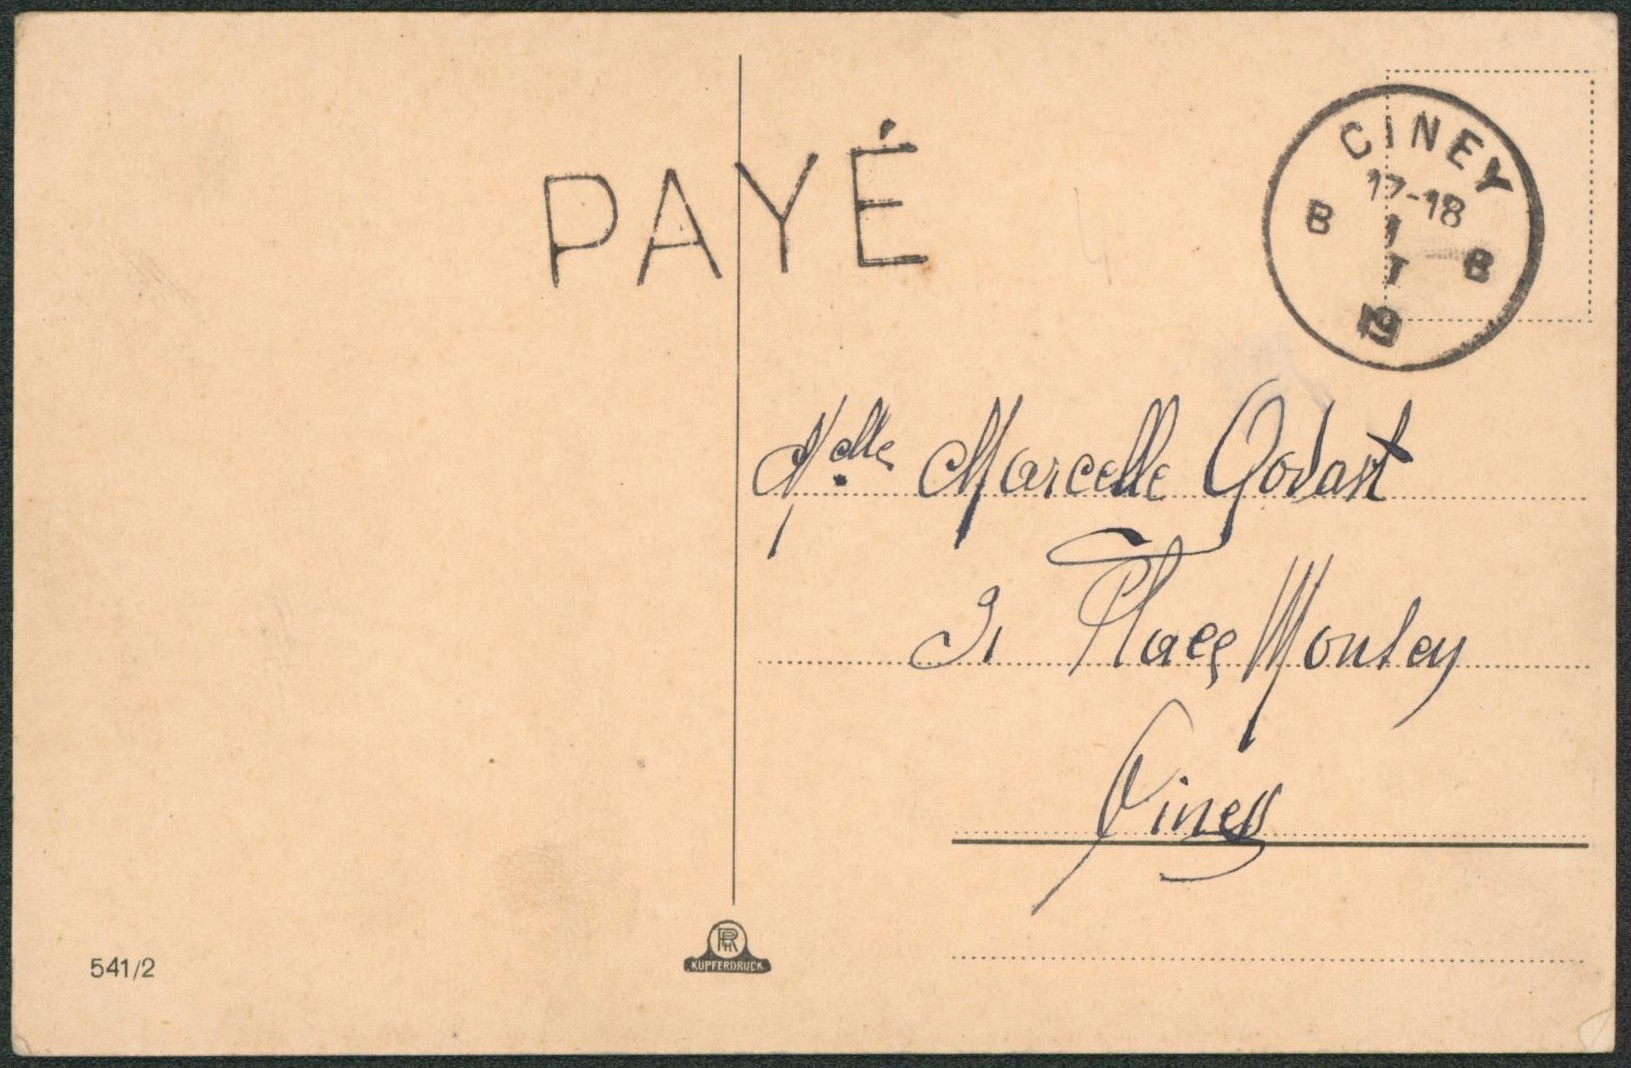 PAYÉ
CINEY
17-18
B 1 B
I
19
Melle Marcelle Godart
31 Place Monseu
Ciney
541/2
KUPFERDRUCK